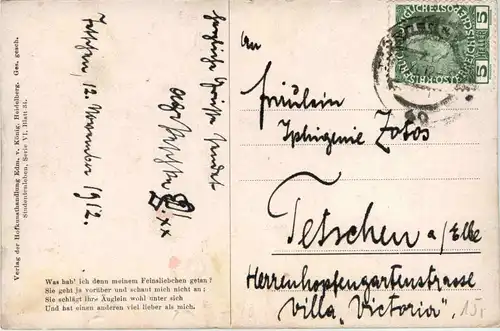 Verlag der Hofkunsthandlung Edm. v. König, Heidelberg. Ges. gesch.
Studentenleben, Serie VI. Blatt 34.
Tetschen, 12. November 1912.
herzliche Grüße sendet
xx
Was hab' ich denn meinem Feinsliebchen getan?
Sie geht ja vorüber und schaut mich nicht an;
Sie schlägt ihre Äuglein wohl unter sich
Und hat einen anderen viel lieber als mich.
5 5
An
Fräulein
Iphigenie Zotos
Tetschen a/Elbe
Herrenhopfengartenstrasse
Villa „Victoria".